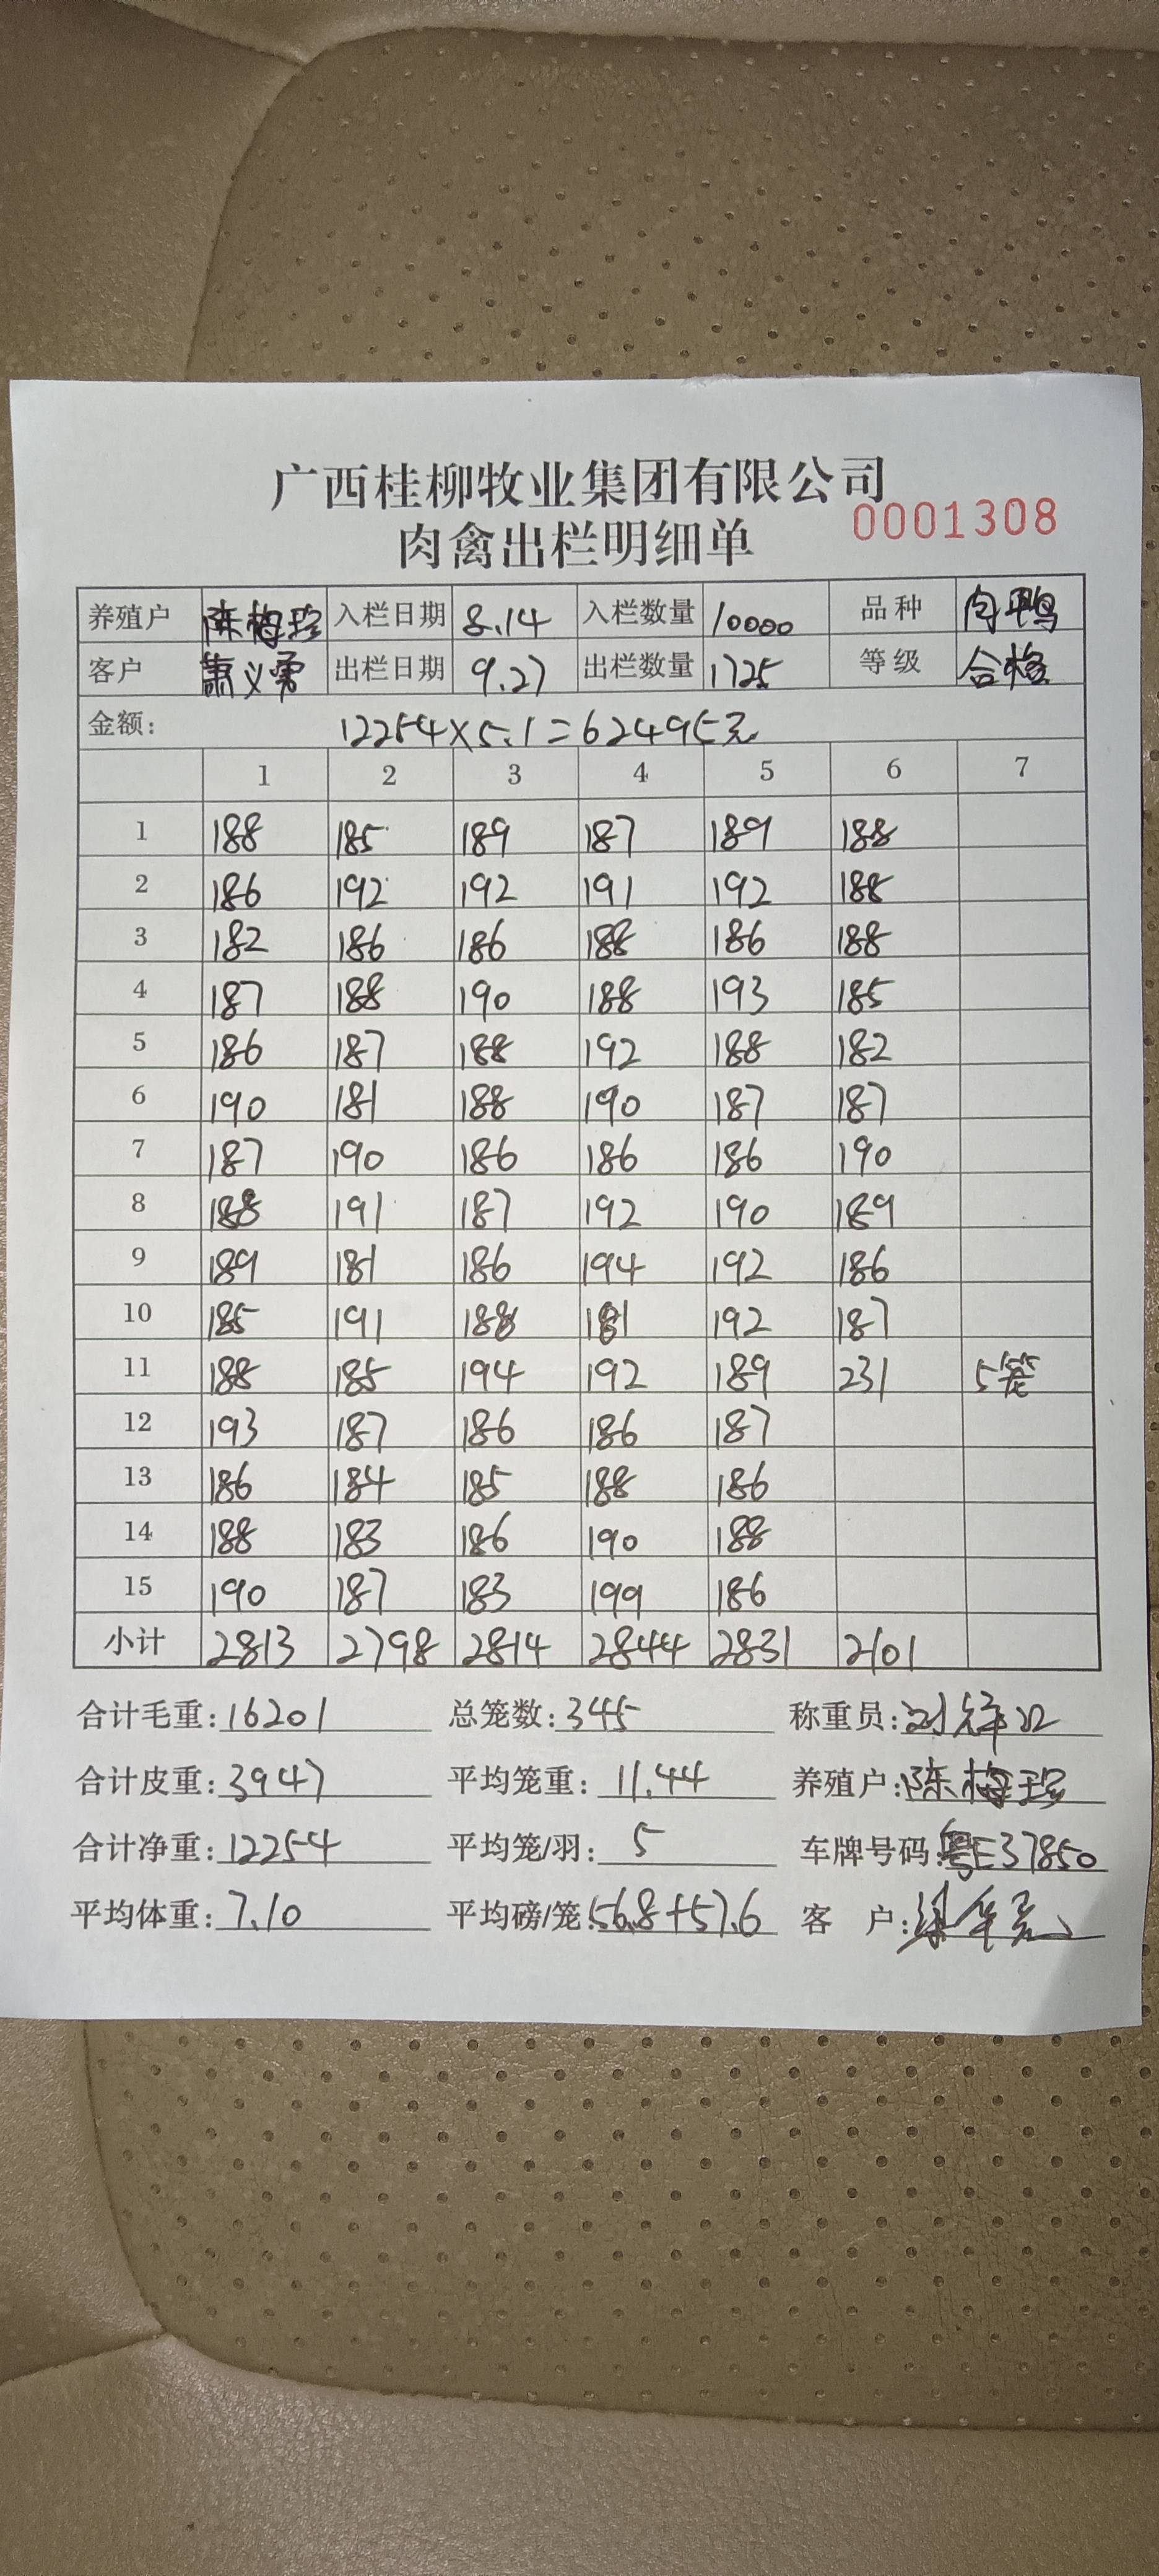 广西桂柳牧业集团有限公司
肉禽出栏明细单
0001308
养殖户 陈梅珍 入栏日期 8.14 入栏数量 10000 品种 肉鸭
客户 萧义勇 出栏日期 9.27 出栏数量 1725 等级 合格
金额: 12254×5.1=62495元
1 2 3 4 5 6 7
1 188 185 189 187 189 188
2 186 192 192 191 192 188
3 182 186 186 188 186 188
4 187 188 190 188 193 185
5 186 187 188 192 188 182
6 190 181 188 190 187 187
7 187 190 186 186 186 190
8 188 191 187 192 190 189
9 189 181 186 194 192 186
10 185 191 188 181 192 187
11 188 185 194 192 189 231 5笼
12 193 187 186 186 187
13 186 184 185 188 186
14 188 183 186 190 188
15 190 187 183 199 186
小计 2813 2798 2814 2844 2831 2101
合计毛重: 16201 总笼数: 345 称重员:
合计皮重: 3947 平均笼重: 11.44 养殖户: 陈梅珍
合计净重: 12254 平均笼/羽: 5 车牌号码: 粤E37850
平均体重: 7.10 平均磅/笼: 56.8+57.6 客 户: